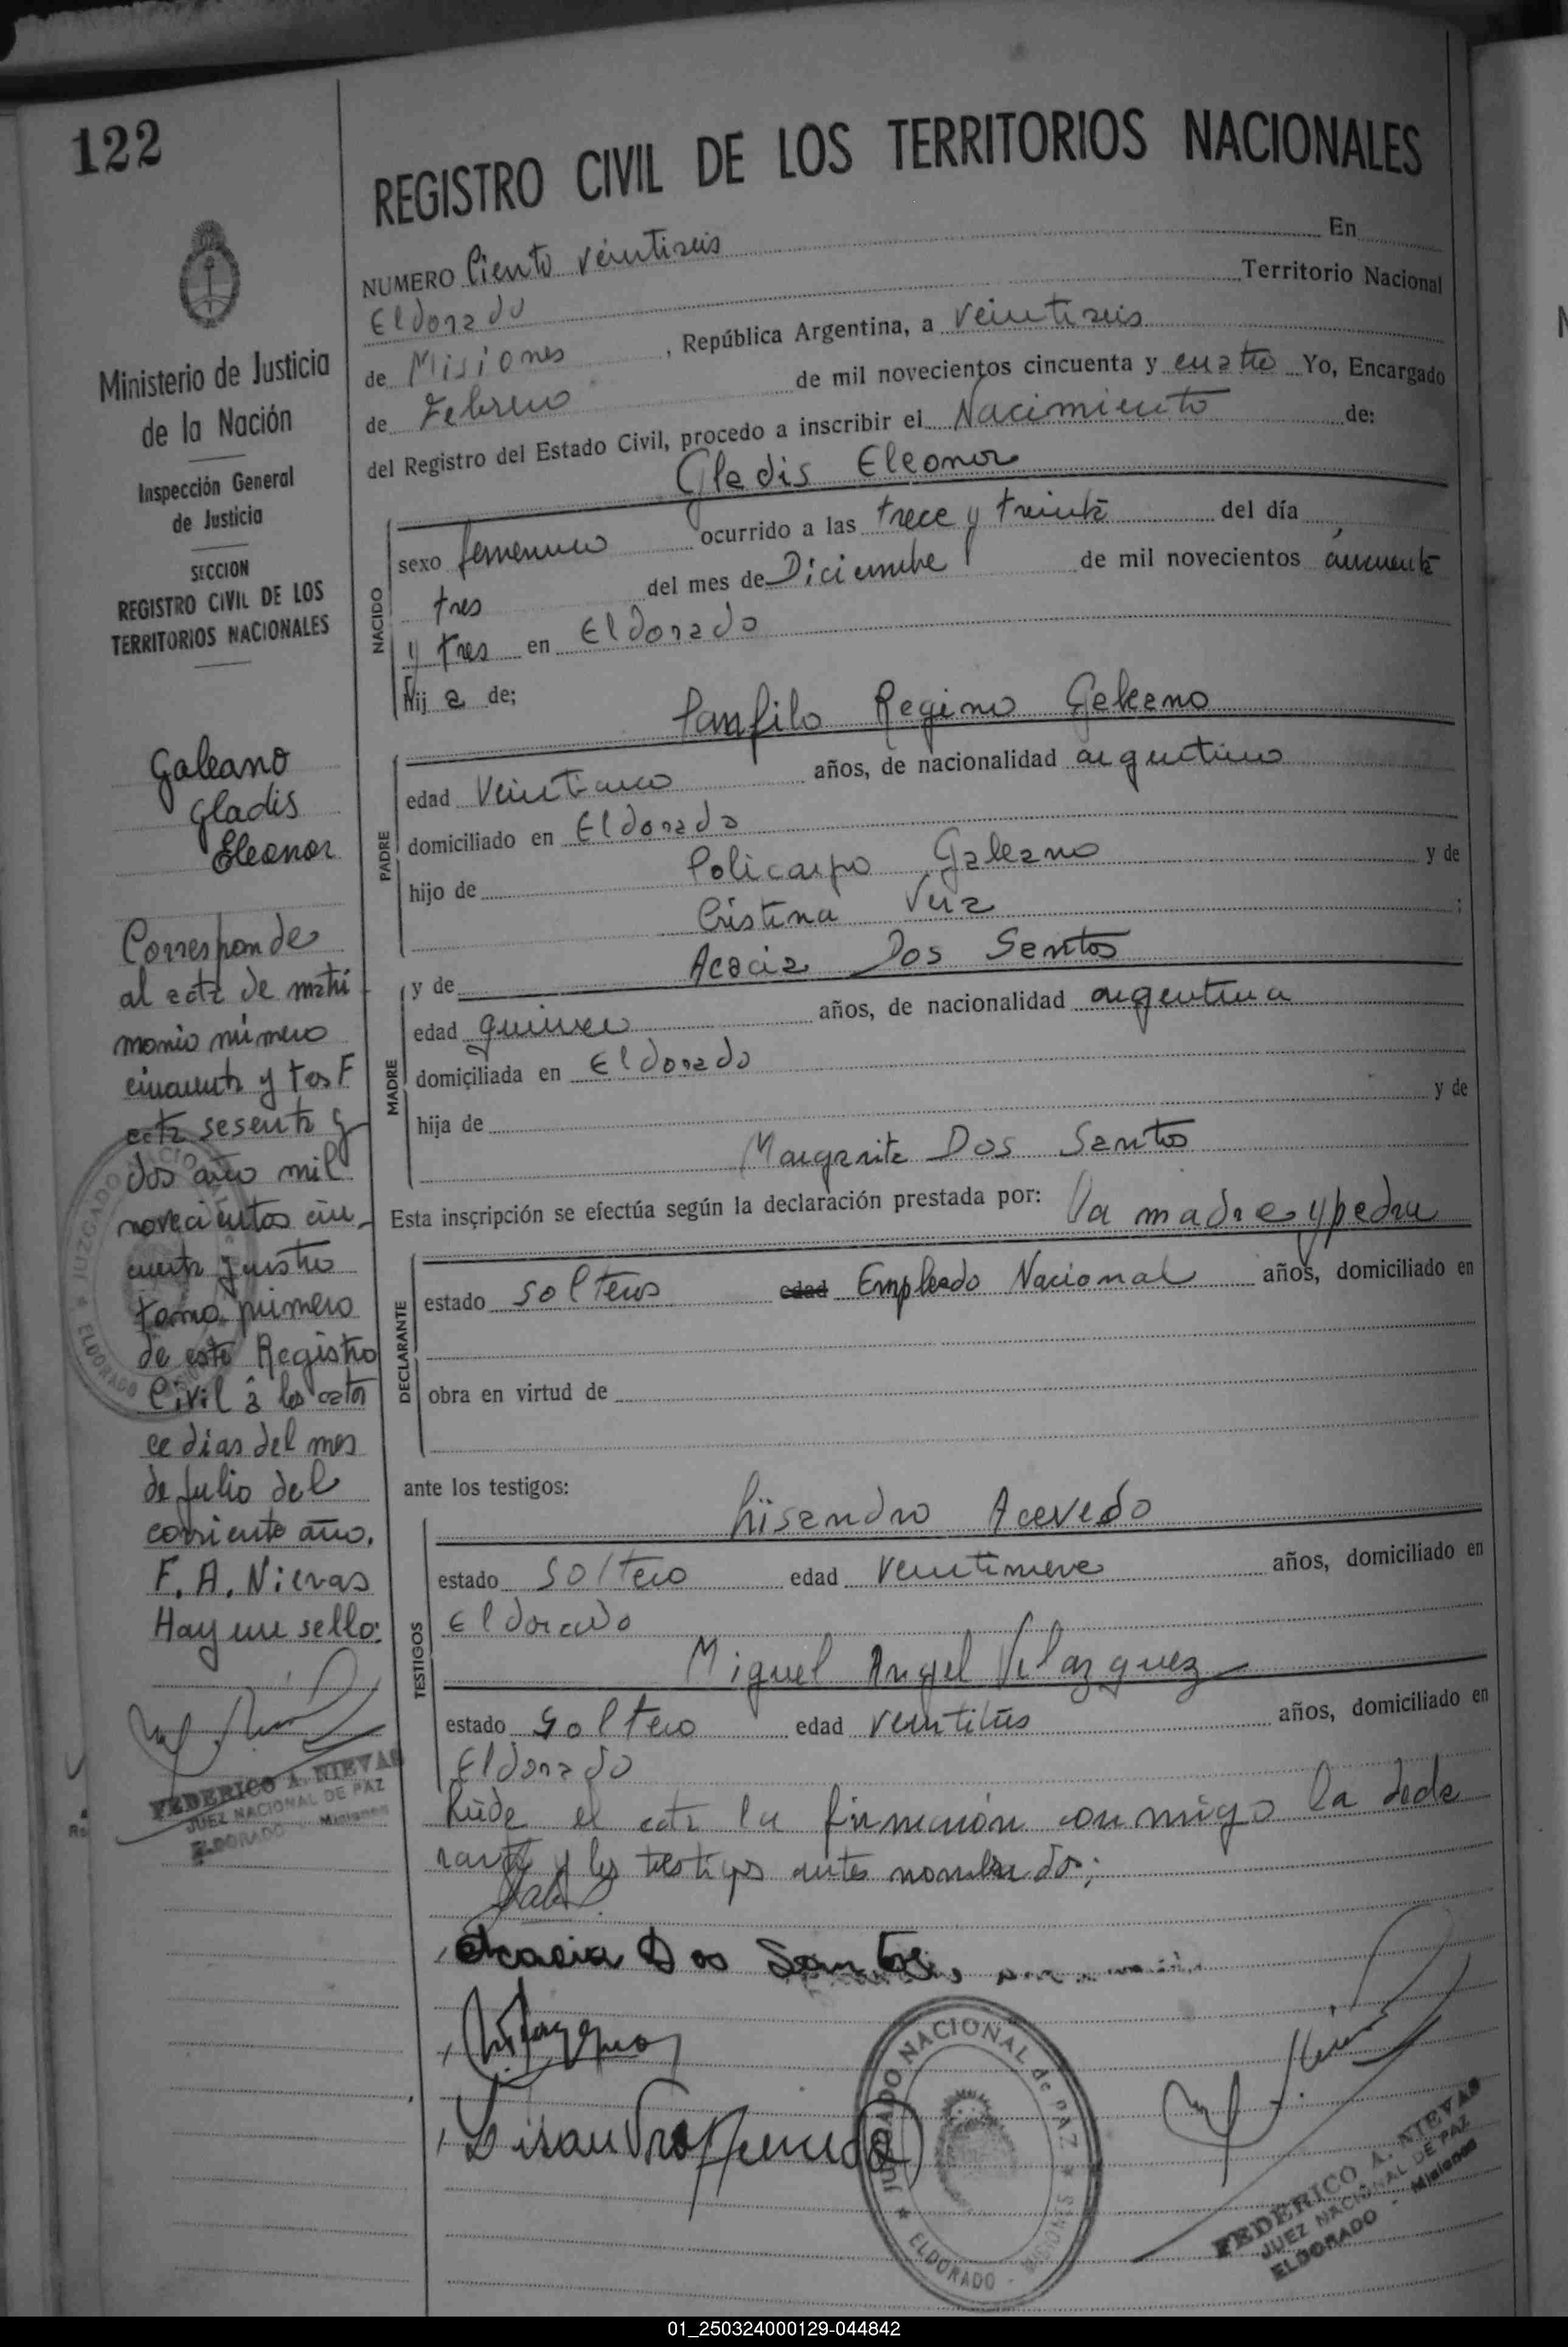 122
REGISTRO CIVIL DE LOS TERRITORIOS NACIONALES
NUMERO Ciento veintiseis En
Eldorado Territorio Nacional
de Misiones, República Argentina, a veintiseis
de Febrero de mil novecientos cincuenta y cuatro Yo, Encargado
del Registro del Estado Civil, procedo a inscribir el Nacimiento de:
Gladis Eleonor
NACIDO
sexo femenino ocurrido a las trece y treinta del día
tres del mes de Diciembre de mil novecientos cincuenta
y tres en Eldorado
hija de;
Panfilo Regino Galeano
PADRE
edad Veinticinco años, de nacionalidad argentino
domiciliado en Eldorado
hijo de Policarpo Galeano y de
Cristina Vera ;
y de Acacia Dos Santos
MADRE
edad quince años, de nacionalidad argentina
domiciliada en Eldorado
hija de y de
Margarita Dos Santos
Esta inscripción se efectúa según la declaración prestada por: la madre y padre
DECLARANTE
estado solteros edad Empleado Nacional años, domiciliado en
obra en virtud de
ante los testigos:
Lisandro Acevedo
TESTIGOS
estado soltero edad veintinueve años, domiciliado en
Eldorado
Miguel Angel Velazquez
estado soltero edad veintitres años, domiciliado en
Eldorado
el acta la conmigo la decla
rante y los testigos antes nombrados;
Acacia Dos Santos
Lisandro Acevedo
JUZGADO NACIONAL de PAZ
ELDORADO - MISIONES
FEDERICO A. NIEVAS
JUEZ NACIONAL DE PAZ
ELDORADO - Misiones
Ministerio de Justicia
de la Nación
Inspección General
de Justicia
SECCION
REGISTRO CIVIL DE LOS
TERRITORIOS NACIONALES
Galeano
Gladis
Eleonor
Corresponde
al acta de matri
monio número
cincuenta y tres F
acta sesenta y
dos año mil
novecientos cin-
cuenta y cuatro
tomo primero
de este Registro
Civil a los cator
ce dias del mes
de Julio del
corriente año.
F. A. Nievas
Hay un sello:
JUZGADO NACIONAL
ELDORADO
FEDERICO A. NIEVAS
JUEZ NACIONAL DE PAZ
ELDORADO - Misiones
01_250324000129-044842